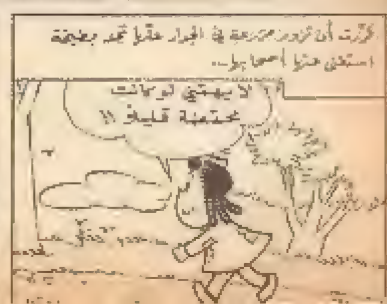 قررت أن تزور مزرعة في الجوار علّها تجد بطيخة
استغنى عنها أصحابها...
لا يهمّني لو كانت
محتعنة قليلاً !!